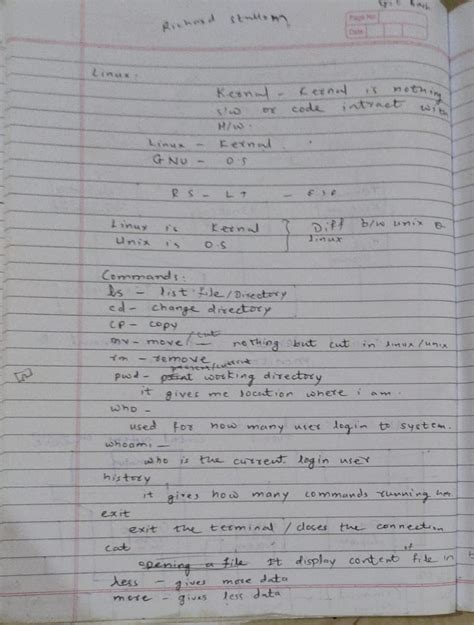 Git Bash
Richard Stallman
Page No.
Date
Linux.
Kernal - Kernal is nothing
s/w or code intract with
H/W.
Linux - Kernal.
GNU - OS
RS - LT - FSF
Linux is Kernal } Diff b/w unix &
Unix is OS } linux
Commands:
ls - list file/Directory
cd - change directory
CP - copy
mv - move/cut nothing but cut in linux/unix
rm - remove
pwd - present/current working directory
it gives me location where i am.
who -
used for how many user login to system.
whoami -
who is the current login user
history
it gives how many commands running
exit
exit the terminal / closes the connection
cat
opening a file It display content of file in
less - gives more data
more - gives less data